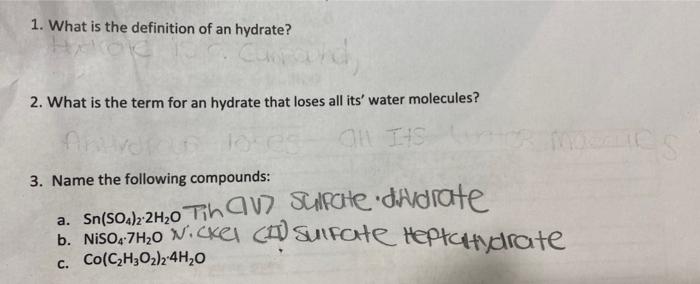 1. What is the definition of an hydrate?
Hydrate is a
2. What is the term for an hydrate that loses all its' water molecules?
loses all Its
3. Name the following compounds:
a. Sn(SO₄)₂·2H₂O Tin (IV) Sulfate · dihydrate
b. NiSO₄·7H₂O Nickel (II) Sulfate Heptahydrate
c. Co(C₂H₃O₂)₂·4H₂O